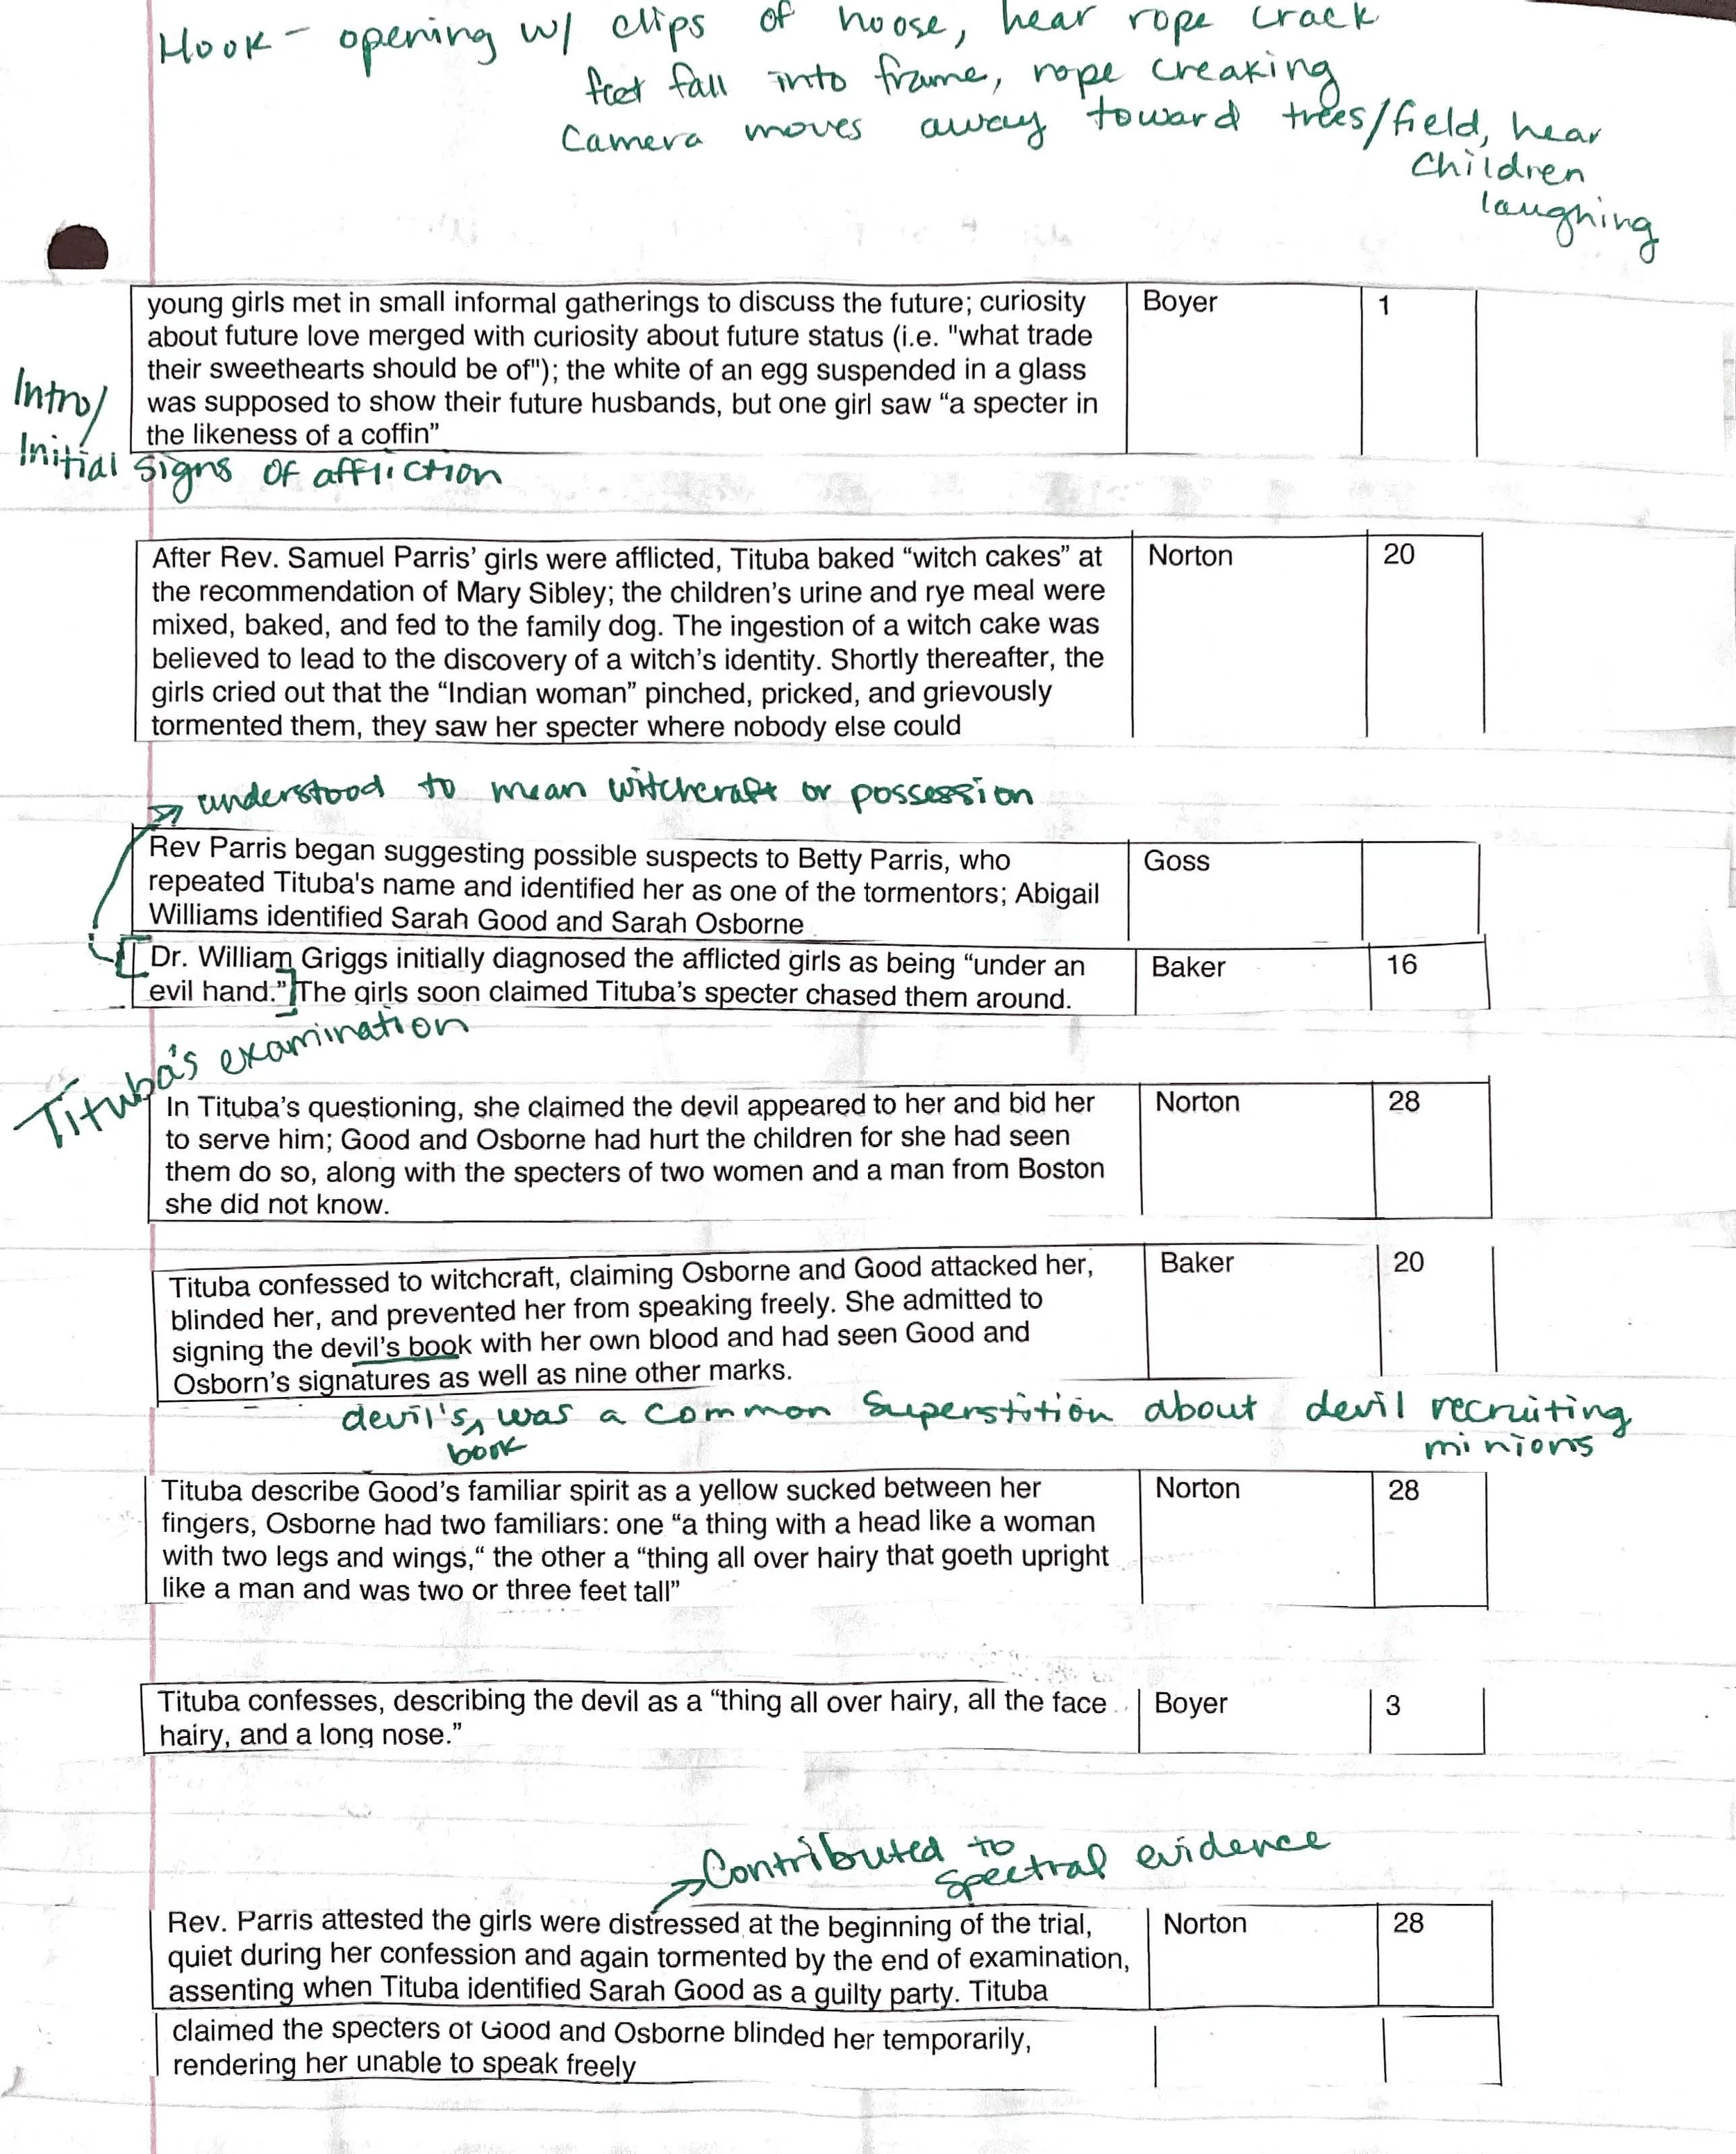 Hook - opening w/ clips of noose, hear rope crack
feet fall into frame, rope creaking
Camera moves away toward trees/field, hear
Children
laughing
young girls met in small informal gatherings to discuss the future; curiosity Boyer 1
about future love merged with curiosity about future status (i.e. "what trade
their sweethearts should be of"); the white of an egg suspended in a glass
was supposed to show their future husbands, but one girl saw “a specter in
the likeness of a coffin”
Intro/
Initial signs of affliction
After Rev. Samuel Parris’ girls were afflicted, Tituba baked “witch cakes” at Norton 20
the recommendation of Mary Sibley; the children’s urine and rye meal were
mixed, baked, and fed to the family dog. The ingestion of a witch cake was
believed to lead to the discovery of a witch’s identity. Shortly thereafter, the
girls cried out that the “Indian woman” pinched, pricked, and grievously
tormented them, they saw her specter where nobody else could
understood to mean witchcraft or possession
Rev Parris began suggesting possible suspects to Betty Parris, who Goss
repeated Tituba's name and identified her as one of the tormentors; Abigail
Williams identified Sarah Good and Sarah Osborne
[Dr. William Griggs initially diagnosed the afflicted girls as being “under an Baker 16
evil hand.”] The girls soon claimed Tituba’s specter chased them around.
Tituba's examination
In Tituba’s questioning, she claimed the devil appeared to her and bid her Norton 28
to serve him; Good and Osborne had hurt the children for she had seen
them do so, along with the specters of two women and a man from Boston
she did not know.
Tituba confessed to witchcraft, claiming Osborne and Good attacked her, Baker 20
blinded her, and prevented her from speaking freely. She admitted to
signing the devil’s book with her own blood and had seen Good and
Osborn’s signatures as well as nine other marks.
devil's book was a common superstition about devil recruiting
minions
Tituba describe Good’s familiar spirit as a yellow sucked between her Norton 28
fingers, Osborne had two familiars: one “a thing with a head like a woman
with two legs and wings,“ the other a “thing all over hairy that goeth upright
like a man and was two or three feet tall”
Tituba confesses, describing the devil as a “thing all over hairy, all the face Boyer 3
hairy, and a long nose.”
Contributed to
spectral evidence
Rev. Parris attested the girls were distressed at the beginning of the trial, Norton 28
quiet during her confession and again tormented by the end of examination,
assenting when Tituba identified Sarah Good as a guilty party. Tituba
claimed the specters of Good and Osborne blinded her temporarily,
rendering her unable to speak freely